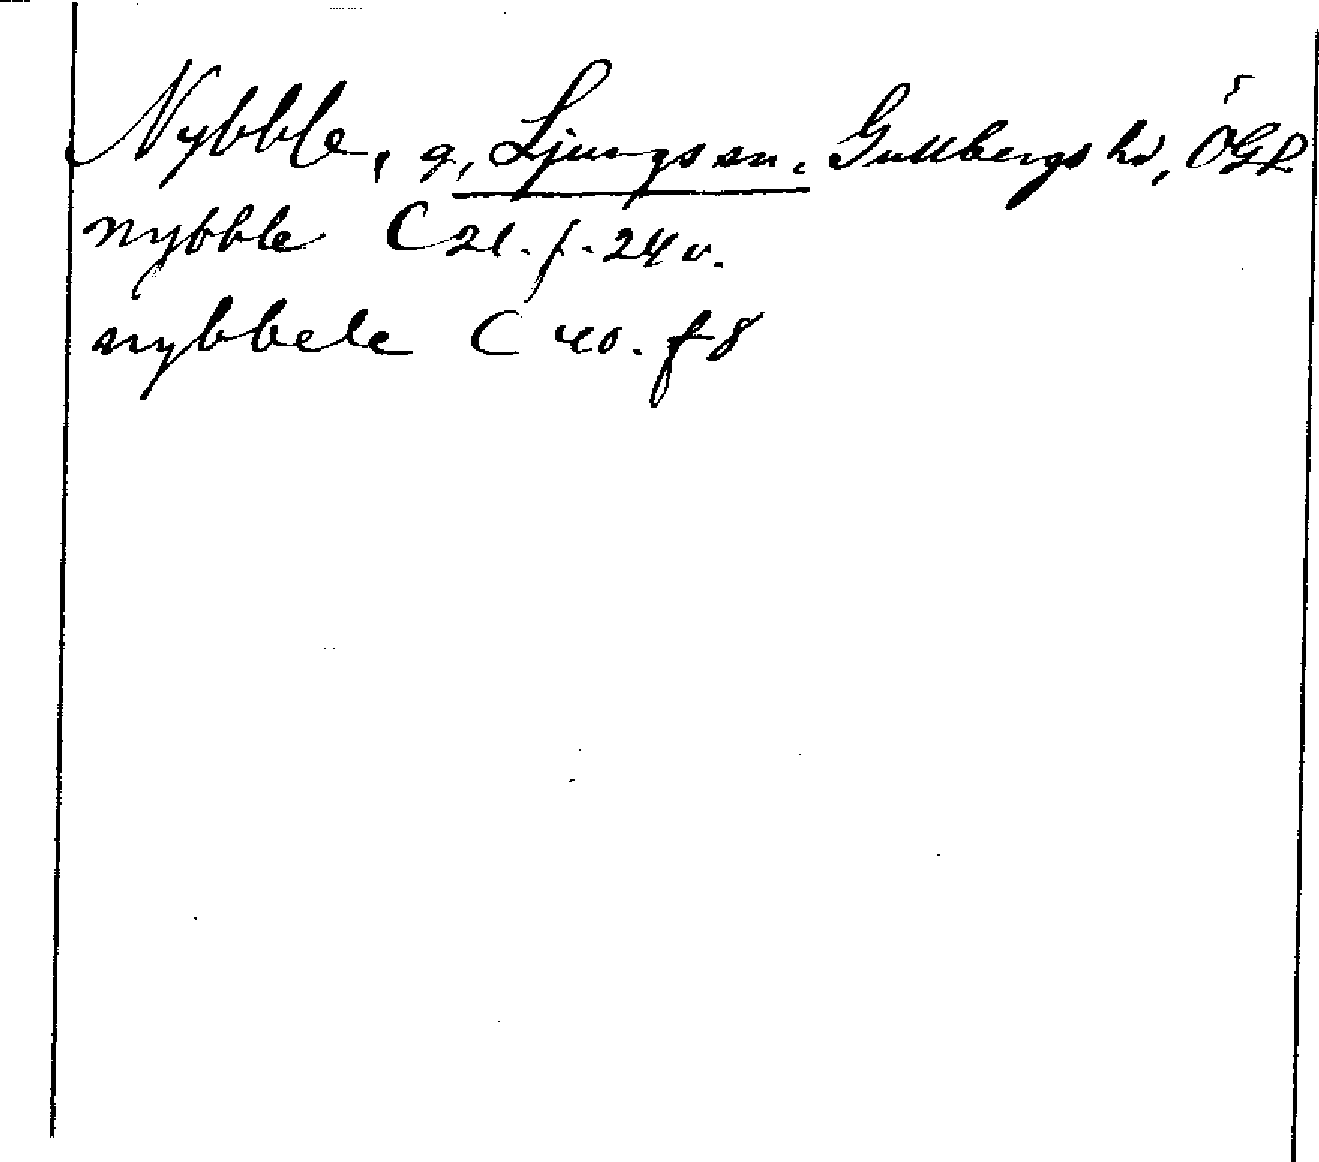 Nybble, g, Ljungs sn. Gullbergs hd, ÖGL
nybble C 21. f. 24 v.
nybbele C 40. f 8